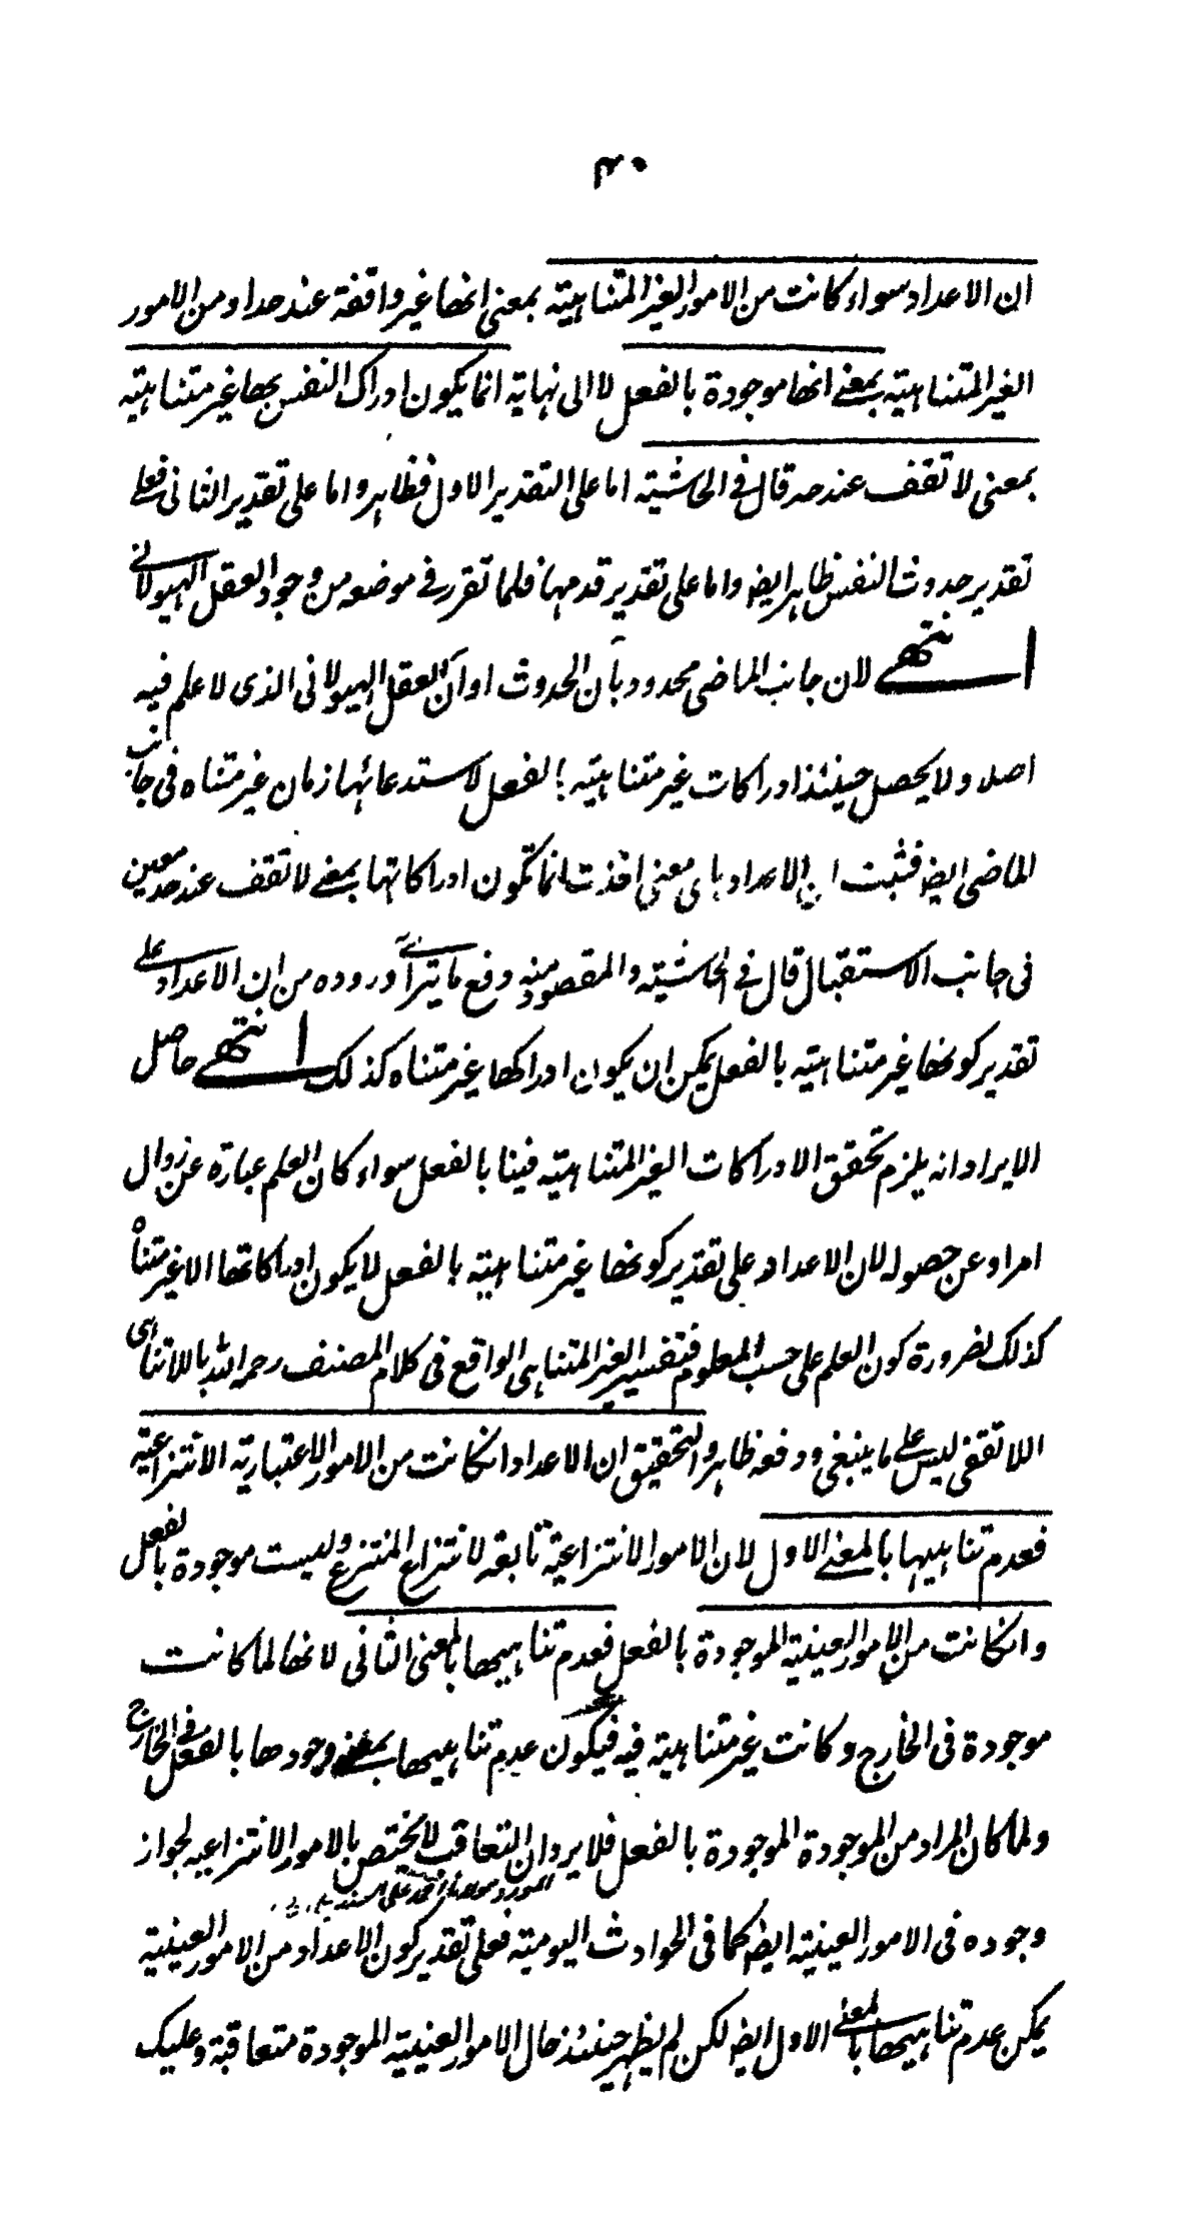 ٣٠
ان الاعداد سواء كانت من الامور الغير المتناهية بمعنى انها غير واقفة عند حد او من الامور
الغير المتناهية بمعنى انها موجودة بالفعل لا الى نهاية انما يكون ادراك النفس بها غير متناهية
بمعنى لا تقف عند حد قال فى الحاشية اما على التقدير الاول فظاهر واما على تقدير الثانى فعلى
تقدير حدوث النفس ظاهر ايضا واما على تقدير قدمها فلما تقرر فى موضعه من وجود العقل الهيولانى
انتهى لان جانب الماضى محدود بآن الحدوث او آن العقل الهيولانى الذى لا علم فيه
اصلا ولا يحصل حينئذ ادراكات غير متناهية بالفعل لاستدعائها زمان غير متناه فى جانب
الماضى ايضا فثبت ان الاعداد باى معنى اخذت انما تكون ادراكاتها بمعنى لا تقف عند حد معين
فى جانب الاستقبال قال فى الحاشية والمقصود منه دفع ما يترآى وروده من ان الاعداد على
تقدير كونها غير متناهية بالفعل يمكن ان يكون ادراكها غير متناه كذلك انتهى حاصل
الايراد انه يلزم تحقق الادراكات الغير المتناهية فينا بالفعل سواء كان العلم عبارة عن زوال
امر او عن حصوله لان الاعداد على تقدير كونها غير متناهية بالفعل لا يكون ادراكاتها الا غير متناه
كذلك لضرورة كون العلم على حسب المعلوم فتفسير الغير المتناهى الواقع فى كلام المصنف رحمه الله باللاتناهى
اللاتقفى ليس على ما ينبغى ودفعه ظاهر والتحقيق ان الاعداد انكانت من الامور الاعتبارية الانتزاعية
فعدم تناهيها بالمعنى الاول لان الامور الانتزاعية تابعة لانتزاع المنتزع وليست موجودة بالفعل
وانكانت من الامور العينية الموجودة بالفعل فعدم تناهيها بالمعنى الثانى لانها لما كانت
موجودة فى الخارج وكانت غير متناهية فيه فيكون عدم تناهيها بمعنى وجودها بالفعل فى الخارج
ولما كان المراد من الموجودة الموجودة بالفعل فلا يرد ان التعاقب لا يختص بالامور الانتزاعيه لجواز
المورد مولانا
وجوده فى الامور العينية ايضا كما فى الحوادث اليومية فعلى تقدير كون الاعداد من الامور العينية
يمكن عدم تناهيها بالمعنى الاول ايضا لكن لم يظهر حينئذ حال الامور العينية الموجودة متعاقبة وعليك